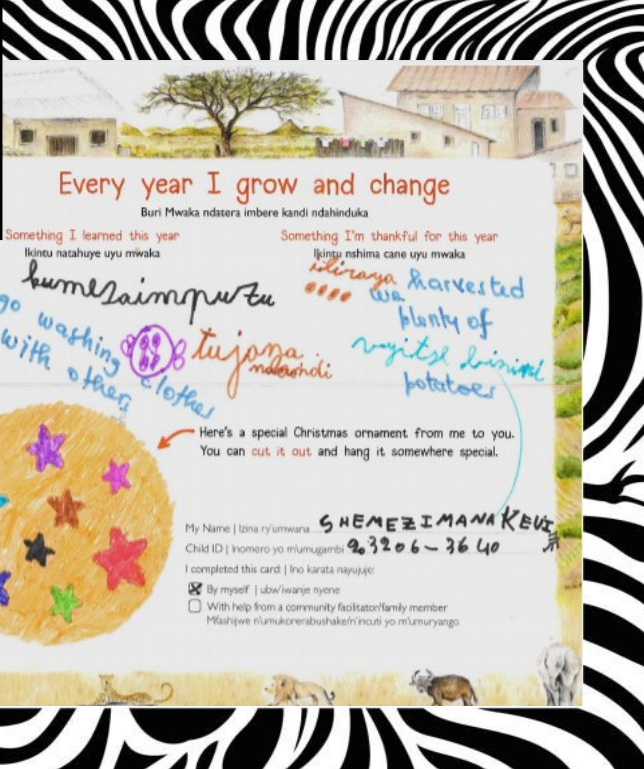 Every year I grow and change
Buri Mwaka ndatera imbere kandi ndahinduka
Something I learned this year
Ikintu natahuye uyu mwaka
kumesaimpuzu
go washing clothes
with others
tujana
Something I'm thankful for this year
Ikintu nshima cane uyu mwaka
we harvested
plenty of
potatoes
Here's a special Christmas ornament from me to you.
You can cut it out and hang it somewhere special.
My Name | Izina ry'umwana SHEMEZIMANA KEVI
Child ID | Inomero yo m'umugambi 903206-3640
I completed this card: | Ino karata nayujuje:
By myself | ubw'iwanje nyene
With help from a community facilitator/family member
Mfashijwe n'umukorerabushake/n'incuti yo m'umuryango